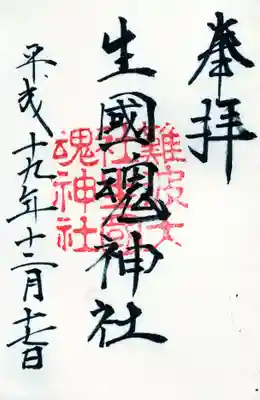 奉拝
生國魂神社
難波大
社生國
魂神社
平成十九年十二月日